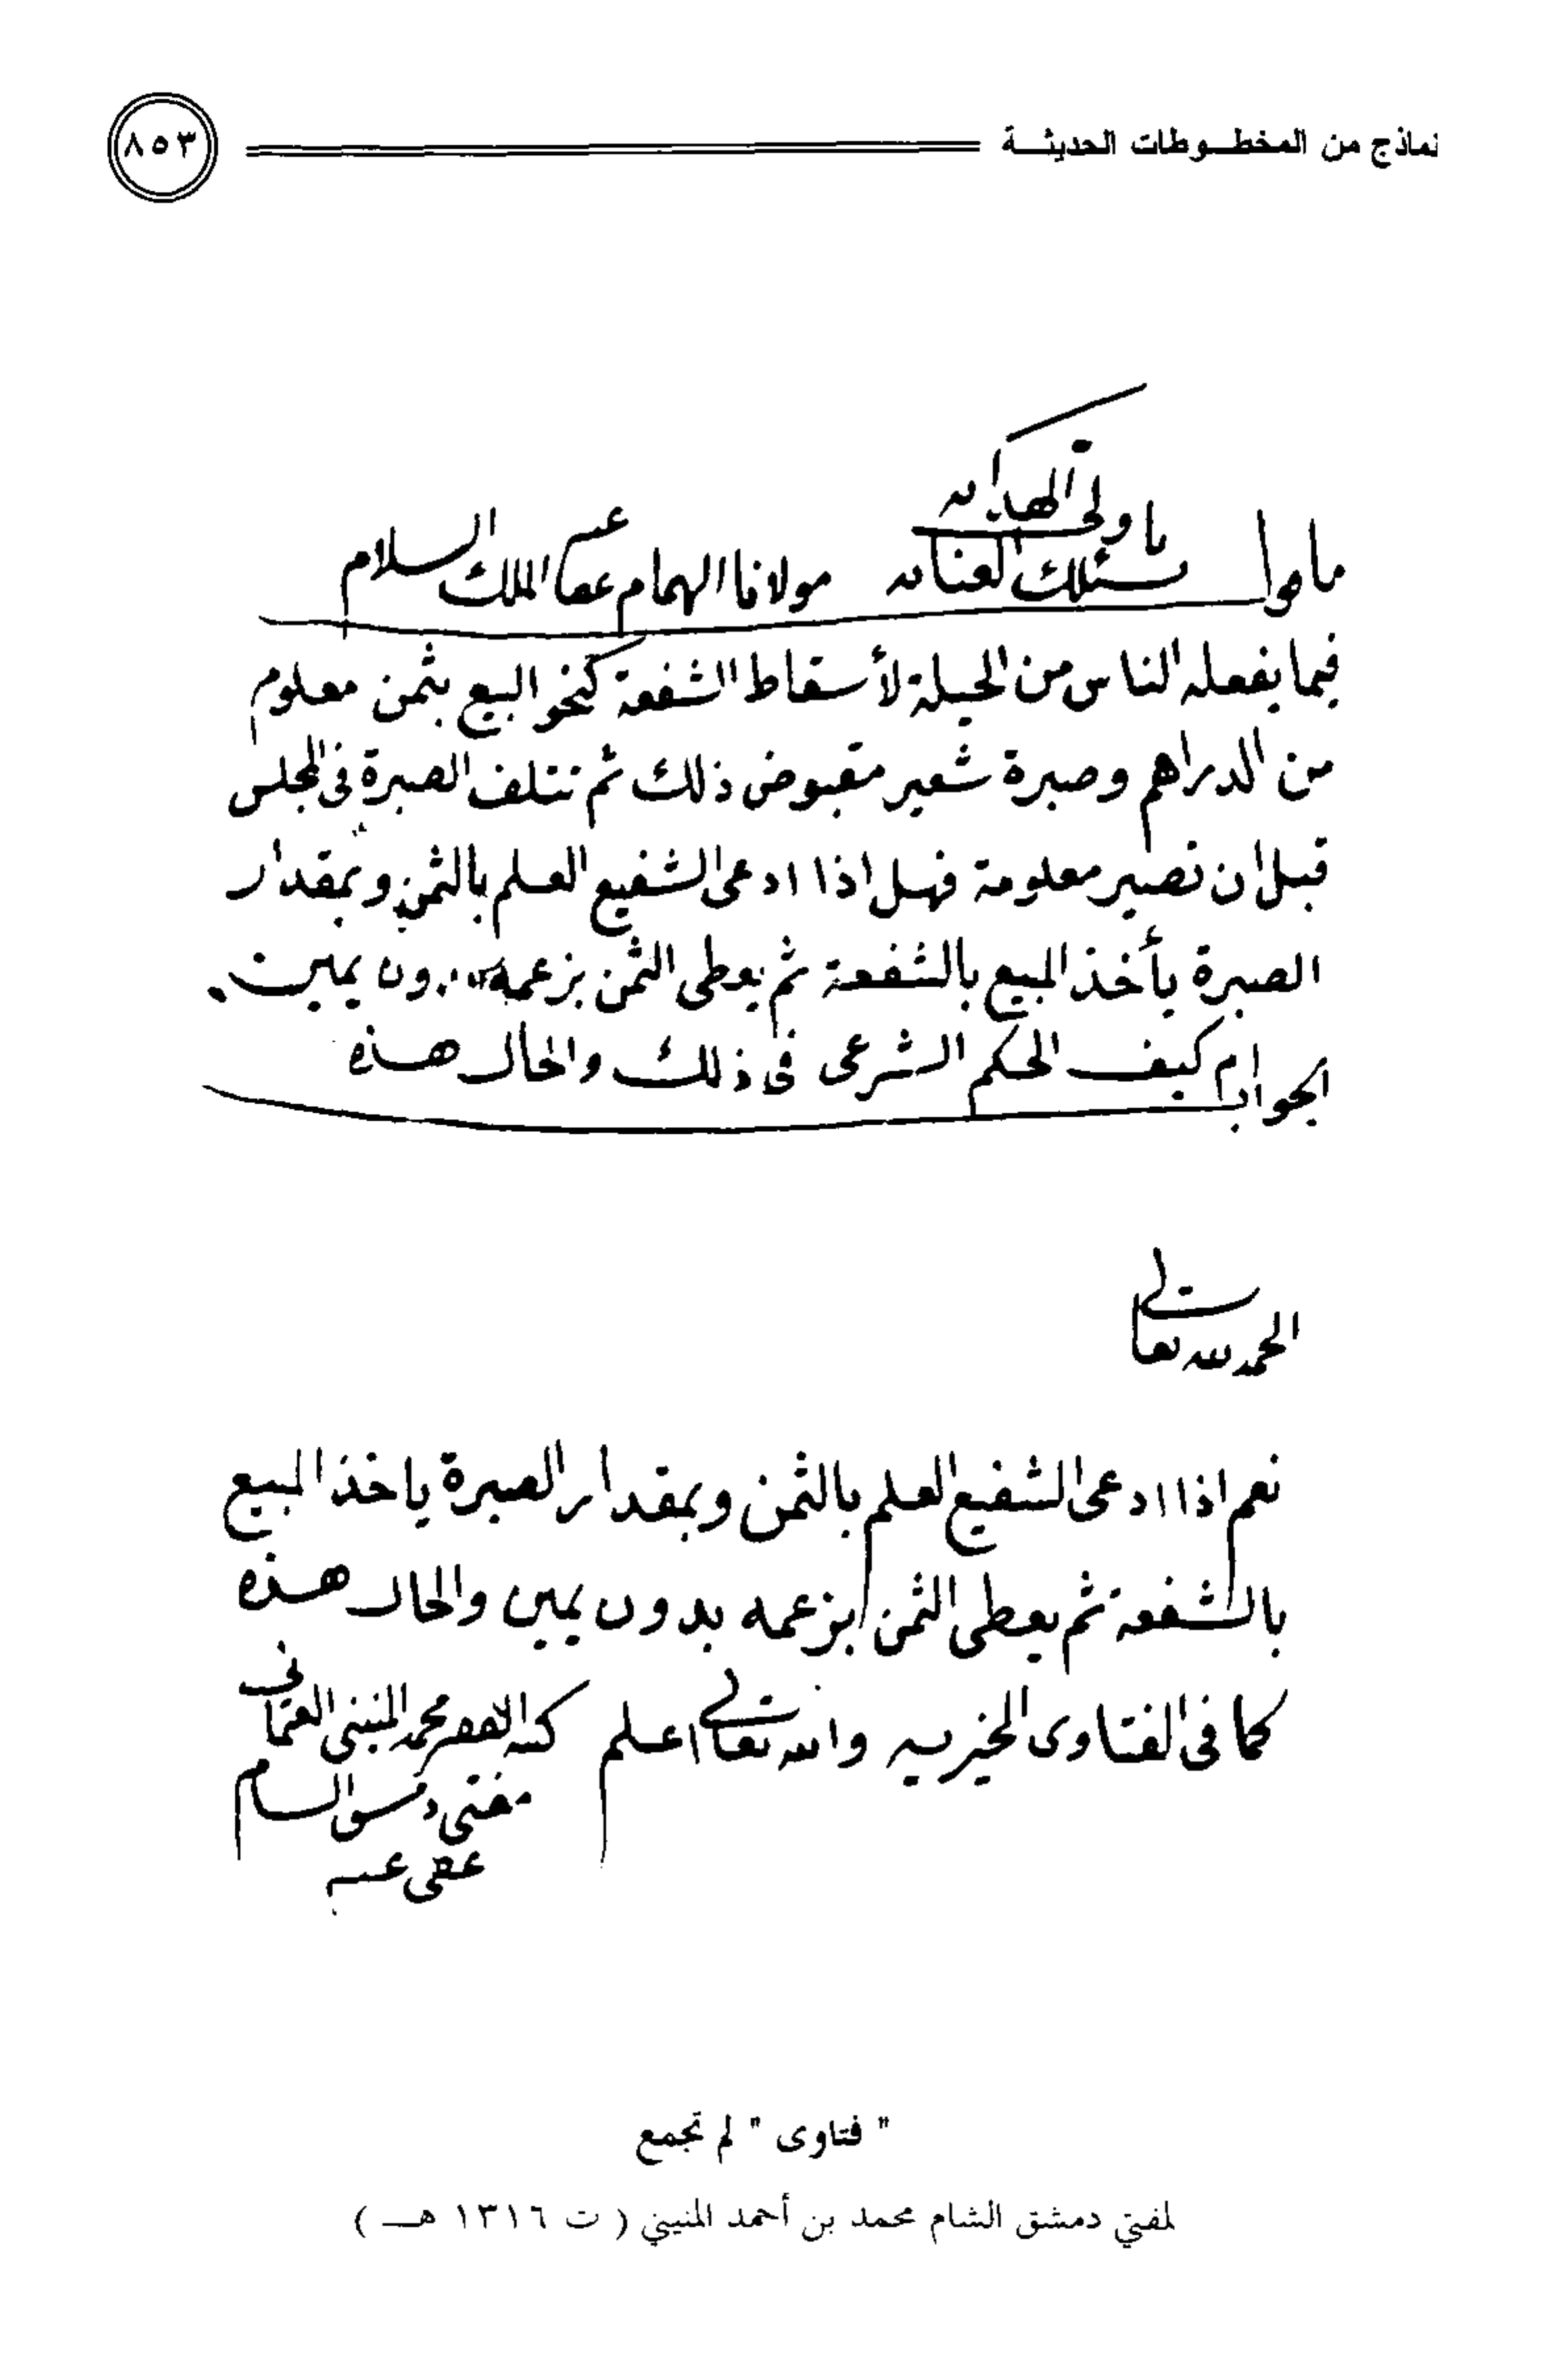 نماذج من المخطوطات الحديثة
٨٥٣
يا ولي الهداية
نسئلك العناية
ما قولـ مولانا الهمام عفا عنه الملك السلام
فيما يفعله الناس من الحيلة لأسقاط الشفعة كنحو البيع بثمن معلوم
من الدراهم وصبرة شعير مقبوض ذلك ثم تتلف الصبرة في المجلس
قبل ان تصير معلومة فهل اذا ادعى الشفيع العلم بالثمن وبمقدار
الصبرة يأخذ المبيع بالشفعة ثم يعطى الثمن بزعمه بدون يمين
ام كيف الحكم الشرعى فى ذلك والحال هذه
الجواب
الحمد لله تعالى
نعم اذا ادعى الشفيع العلم بالثمن وبمقدار الصبرة ياخذ المبيع
بالشفعة ثم يعطى الثمن بزعمه بدون يمين والحال هذه
كما فى الفتاوى الخيريه والله تعالى اعلم كتبه الفقير محمد المنينى العثمانى
مفتى دمشق الشام
عفى عنه
" فتاوى " لم تجمع
لمفتي دمشق الشام محمد بن أحمد المنيني ( ت ١٣١٦ هـ )